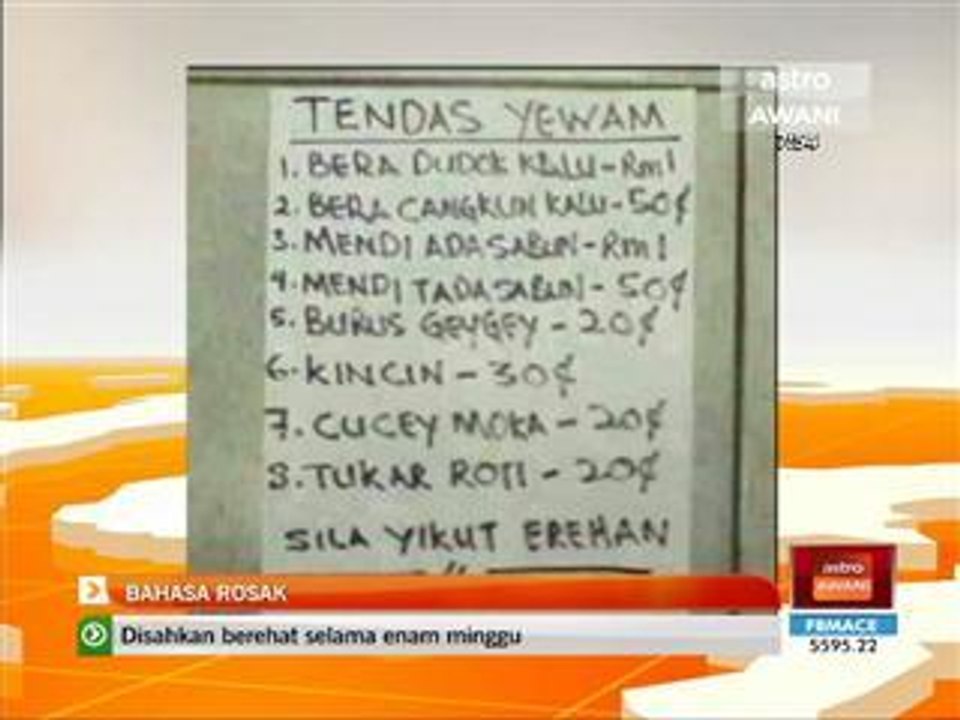 astro
AWANI
TENDAS YEWAM
1. BERA DUDOK KALU - Rm1
2. BERA CANGKUN KALU - 50¢
3. MENDI ADA SABUN - Rm1
4. MENDI TADA SABUN - 50¢
5. BURUS GEYGEY - 20¢
6. KINCIN - 30¢
7. CUCEY MOKA - 20¢
8. TUKAR ROTI - 20¢
SILA YIKUT EREHAN
BAHASA ROSAK
Disahkan berehat selama enam minggu
astro
AWANI
FBMACE
5595.22